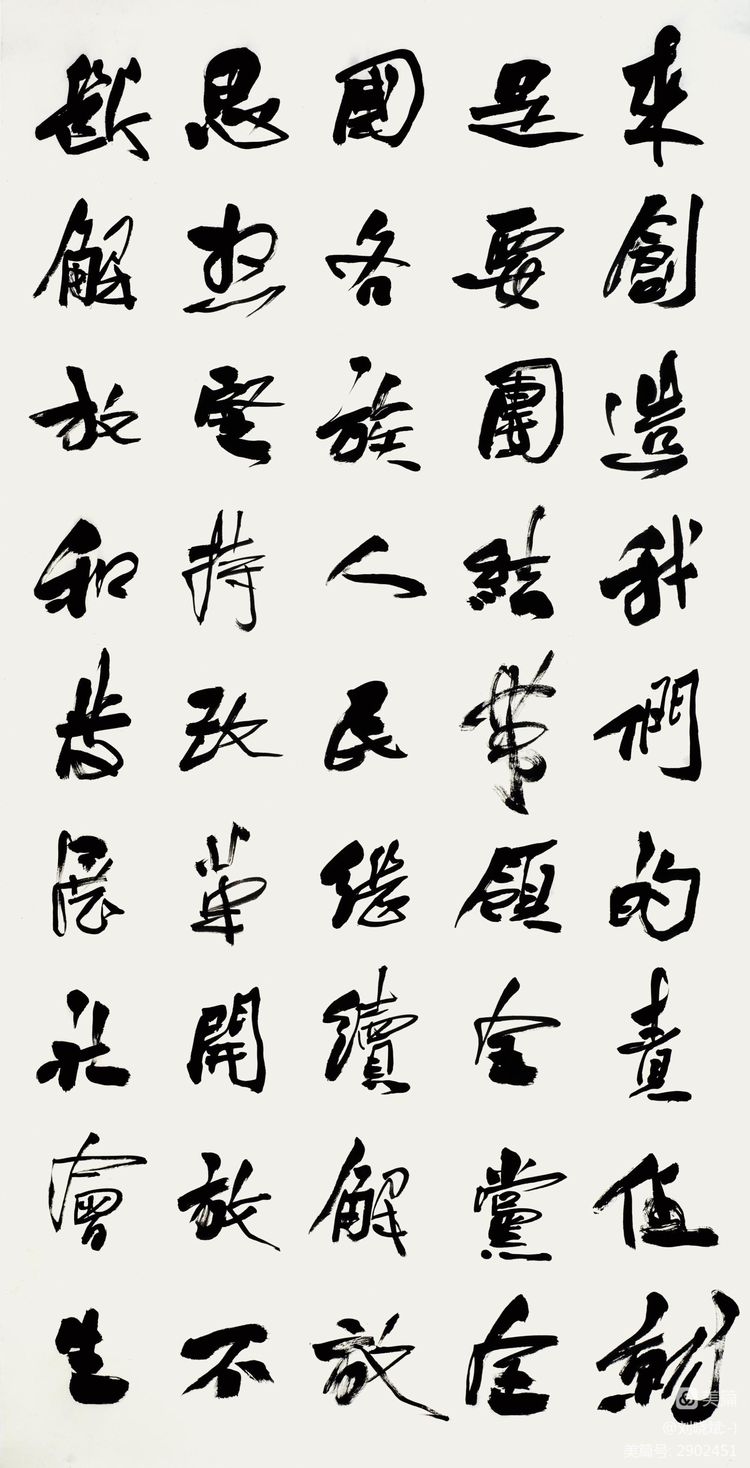 來創造我們的責任就
是要團結帶領全黨全
國各族人民繼續解放
思想堅持改革開放不
斷解放和發展社會生
美篇
@刘晓斌:-)
美篇号: 2902451